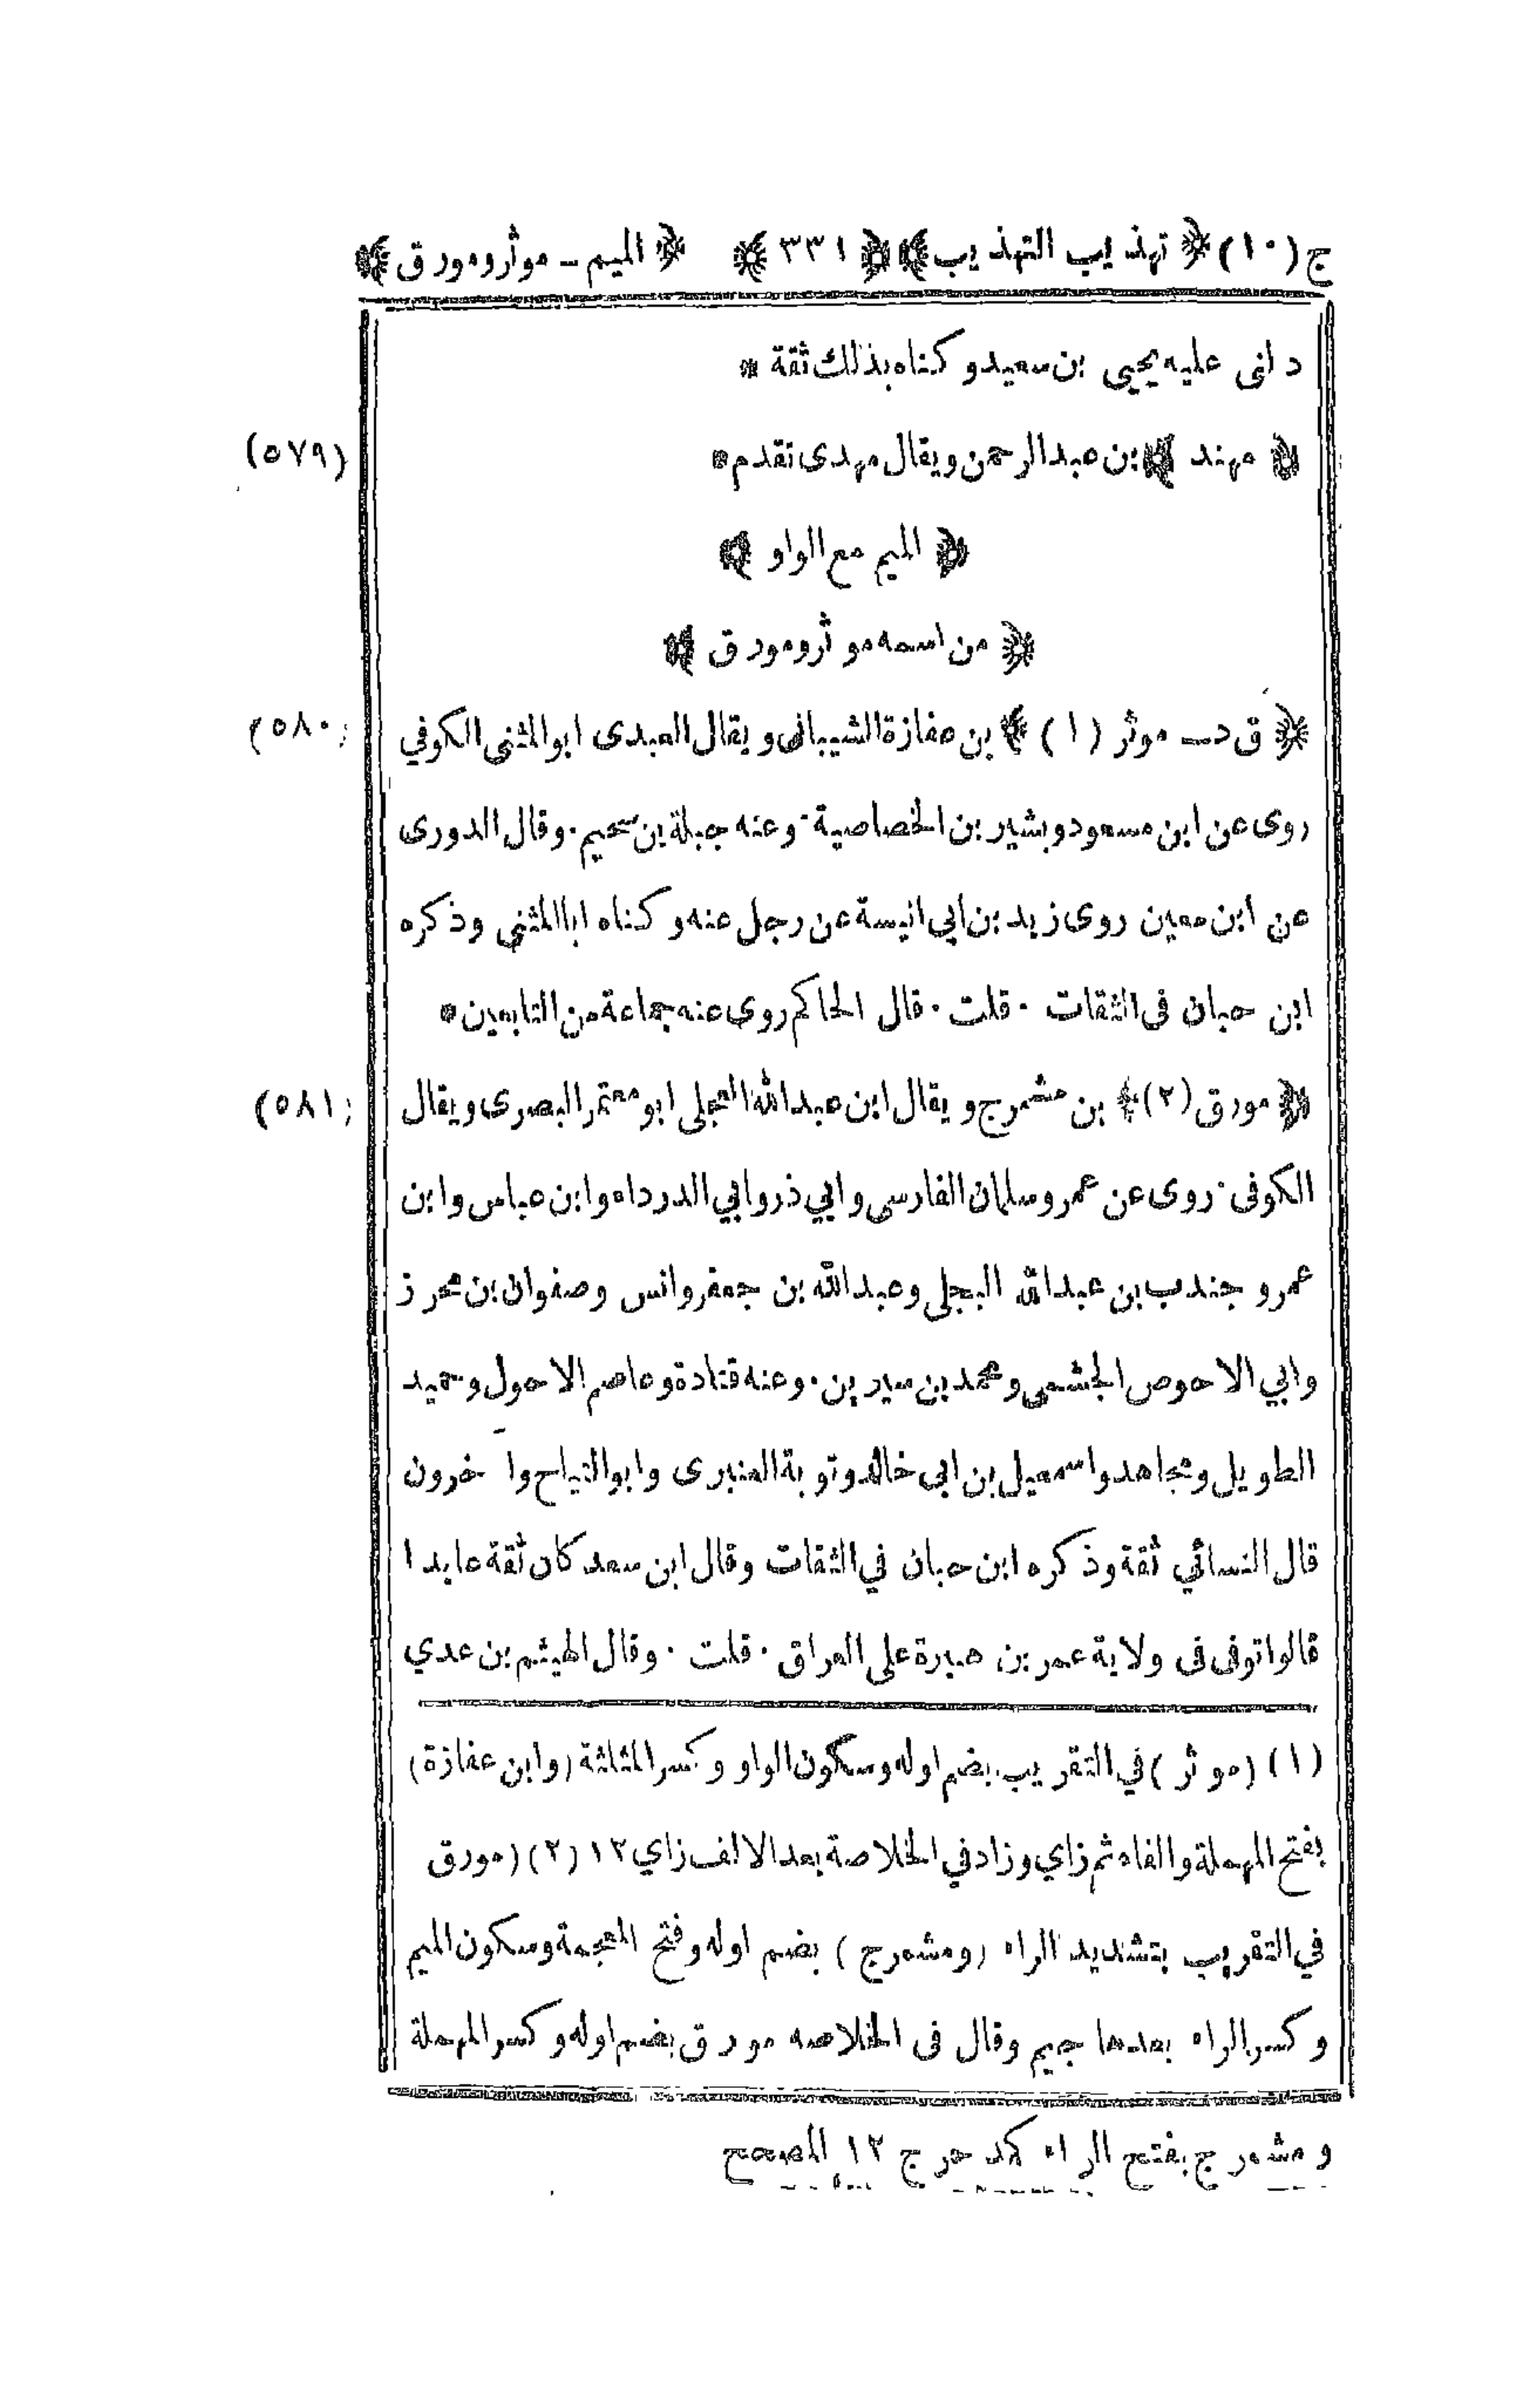 ج (١٠) ﴿ تهذيب التهذيب ﴾ ﴿ ٣٣١ ﴾ ﴿ الميم ــ موثر ومورق ﴾
دلنى عليه يحيى بن سعيد وكناه بذلك ثقة *
﴿ مهند ﴾ بن عبد الرحمن ويقال مهدى تقدم * (٥٧٩)
﴿ الميم مع الواو ﴾
﴿ من اسمه موثر ومورق ﴾
﴿ ق د ــ موثر (١) ﴾ بن عفازة الشيبانى ويقال العبدى ابو المثنى الكوفي (٥٨٠)
روى عن ابن مسعود وبشير بن الخصاصية · وعنه جبلة بن سحيم · وقال الدورى
عن ابن معين روى زيد بن ابي انيسة عن رجل عنه وكناه ابا المثنى وذكره
ابن حبان فى الثقات · قلت · قال الحاكم روى عنه جماعة من التابعين *
﴿ مورق (٢) ﴾ بن مشمرج ويقال ابن عبد الله العجلى ابو معتمر البصرى ويقال (٥٨١)
الكوفى · روى عن عمر وسلمان الفارسى وابي ذر وابي الدرداء وابن عباس وابن
عمر وجندب بن عبد الله البجلى وعبد الله بن جعفر وانس وصفوان بن محرز
وابي الاحوص الجشمى ومحمد بن سيرين · وعنه قتادة وعاصم الاحول وحميد
الطويل ومجاهد واسمعيل بن ابى خالد وتوبة العنبرى وابو التياح وآخرون
قال النسائي ثقة وذكره ابن حبان في الثقات وقال ابن سعد كان ثقة عابدا
قالوا توفى فى ولاية عمر بن هبيرة على العراق · قلت · وقال الهيثم بن عدي
(١) (موثر) في التقريب بضم اوله وسكون الواو وكسر المثلثة (وابن عفازة)
بفتح المهملة والفاء ثم زاي وزاد في الخلاصة بعد الالف زاي ١٢ (٢) (مورق
في التقريب بتشديد الراء (ومشمرج) بضم اوله وفتح المعجمة وسكون الميم
وكسر الراء بعدها جيم وقال فى الخلاصه مورق بضم اوله وكسر المهملة
ومشمرج بفتح الراء كمدحرج ١٢ المصحح